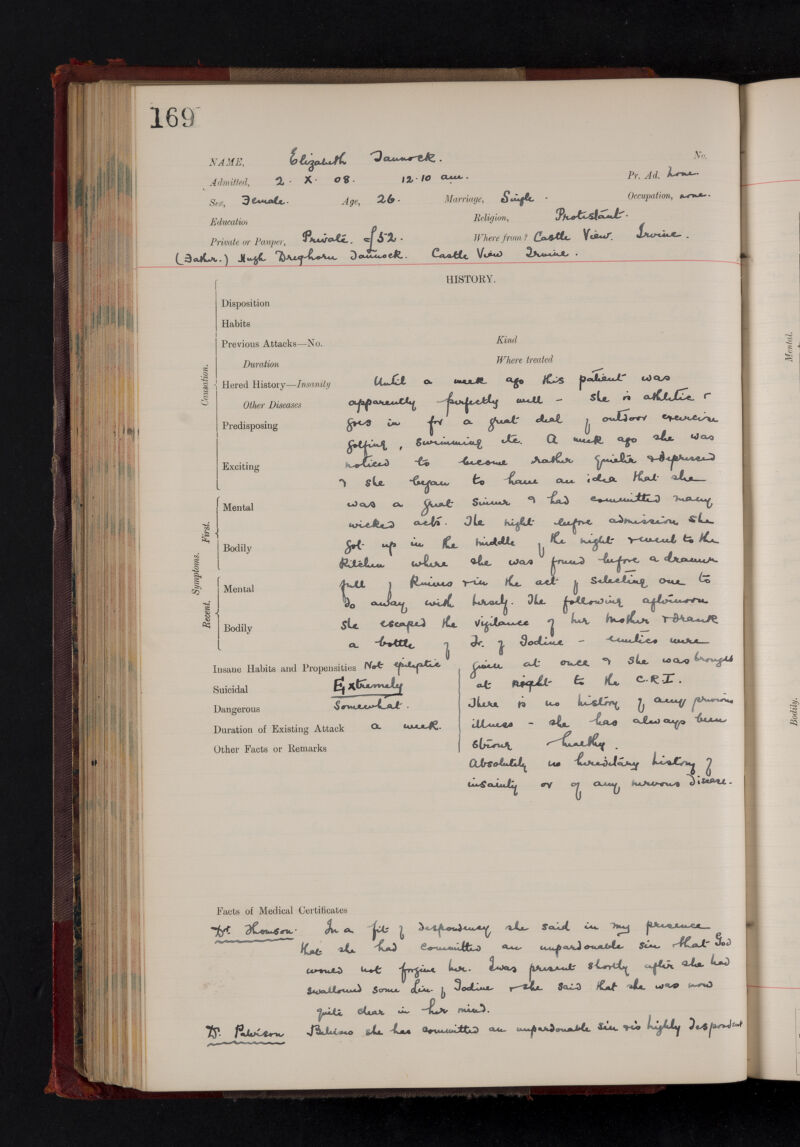 169
NAME, Elizabeth Dunnock. No.
Admitted, 2. X. 08. 12.10 am. Pr. Ad. none
Sex, Female. Age, 26. Marriage, Single. Occupation, none.
Education Religion, Protestant.
Private or Pauper, Private. £52. Where from? Castle View. Irvine.
(Father.) Hugh Dreghorn Castle View Irvine.
HISTORY.
Disposition
Habits
Previous Attacks—No. Kind
Duration Where treated
Causation.
Hered History—Insanity Until a week ago this patient was
Other Diseases apparently perfectly well - she is athletic &
Predisposing goes in for a great deal of outdoor exercise
golfing, swimming etc. A week ago she was
Exciting noticed to become rather quieter & depressed
& she began to have an idea that she
Symptoms. First. Mental was a great sinner & had committed many
wicked acts. The night before admission she
Bodily got up in the middle of the night & went to the
Kitchen where she was found before a drawer
Recent. Mental full of Knives & in the act of selecting one to
do away with herself. The following afternoon
Bodily she escaped the vigilance of her mother & drank
a bottle of Tr. of Iodine - emetics were
Insane Habits and Propensities Not epileptic given at once & she was brought
Suicidal Extremely at night to the C.R.I.
Dangerous Somewhat. There is no history of any previous
Duration of Existing Attack a week. illness - she has always been
Other Facts or Remarks strong & healthy.
Absolutely no hereditary history of
insanity or of any nervous disease.
Facts of Medical Certificates
Dr. Thomson. In a fit of despondency she said in my presence
that she had committed an unpardonable sin & that God
would not forgive her. I was present shortly after she had
swallowed some Lin. of Iodine & she said that she was now
quite clear in her mind.
Dr. Believes she has committed an unpardonable sin & is highly despondent
Mental.
Bodily.